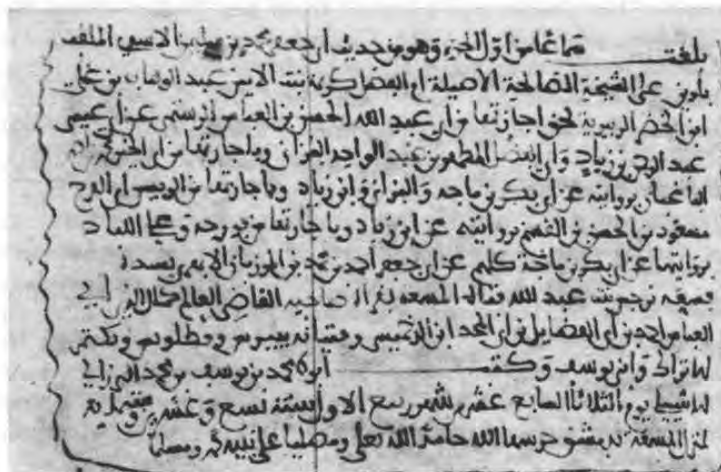 بلغت سماعا من اول الجزء وهو من حديث ابي جعفر محمد بن سليمن الاسدي الملقب
بلوين على الشيخة الصالحة الاصيلة ام الفضل كريمة بنت الامين عبد الوهاب بن علي
ابن الخضر الزبيرية بحق اجازتها من ابي عبد الله الحسن بن العباس الرستمي عن ابي عيسى
عبد الرحمن بن زياد وابي الفضل المطهر بن عبد الواحد البزاني وباجازتها من ابي الخير محمد بن
الباغبان بروايته عن ابي بكر بن ماجه والبزاني وابن زياد وباجازتها من الرئيس ابي الفرج
مسعود بن الحسن بن القسم بروايته عن ابن زياد وباجازتها من
بروايتهما عن ابي بكر بن ماجة كلهم عن ابي جعفر احمد بن محمد بن المرزبان الابهري بسنده
فسمعه عبد الله المسمعه بقراة صاحبه القاضي العالم كمال الدين ابي
العباس احمد بن ابي الفضايل بن ابي المجد ابن
ابن يوسف وكتب محمد بن يوسف بن محمد البرزالي
الاشبيلي يوم الثلاثا السابع عشر من شهر ربيع الاول سنة تسع وعشرين وستمايه
بمنزل المسمعة بدمشق حرسها الله حامدا لله تعلى ومصليا على نبيه محمد ومسلما